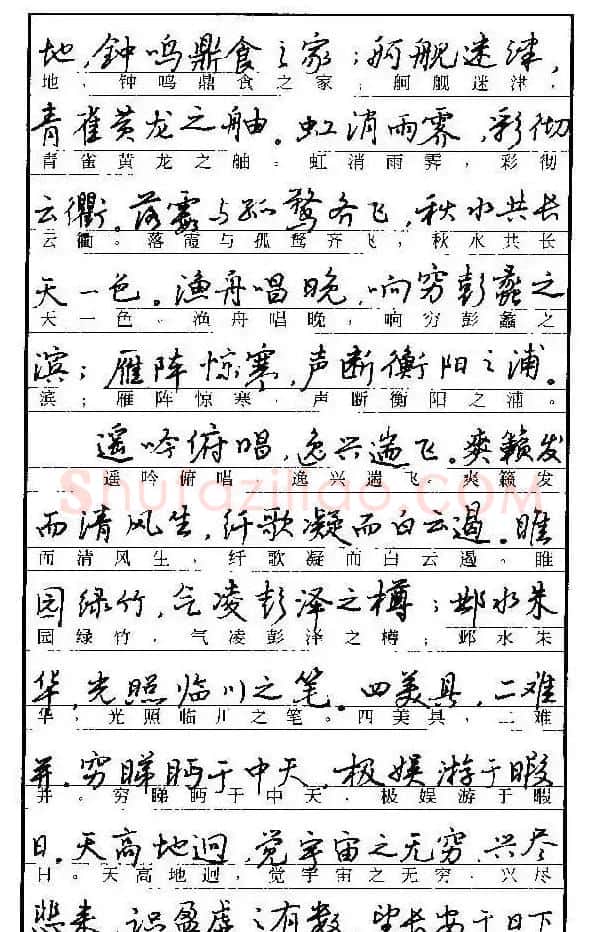 地，钟鸣鼎食之家；舸舰迷津，
地，钟鸣鼎食之家；舸舰迷津，
青雀黄龙之舳。虹消雨霁，彩彻
青雀黄龙之舳。虹消雨霁，彩彻
云衢。落霞与孤鹜齐飞，秋水共长
云衢。落霞与孤鹜齐飞，秋水共长
天一色。渔舟唱晚，响穷彭蠡之
天一色。渔舟唱晚，响穷彭蠡之
滨；雁阵惊寒，声断衡阳之浦。
滨；雁阵惊寒，声断衡阳之浦。
遥吟俯唱，逸兴遄飞。爽籁发
遥吟俯唱，逸兴遄飞。爽籁发
Shufaziliao.COM
而清风生，纤歌凝而白云遏。睢
而清风生，纤歌凝而白云遏。睢
园绿竹，气凌彭泽之樽；邺水朱
园绿竹，气凌彭泽之樽；邺水朱
华，光照临川之笔。四美具，二难
华，光照临川之笔。四美具，二难
并。穷睇眄于中天，极娱游于暇
并。穷睇眄于中天，极娱游于暇
日。天高地迥，觉宇宙之无穷，兴尽
日。天高地迥，觉宇宙之无穷，兴尽
悲来，识盈虚之有数。望长安于日下